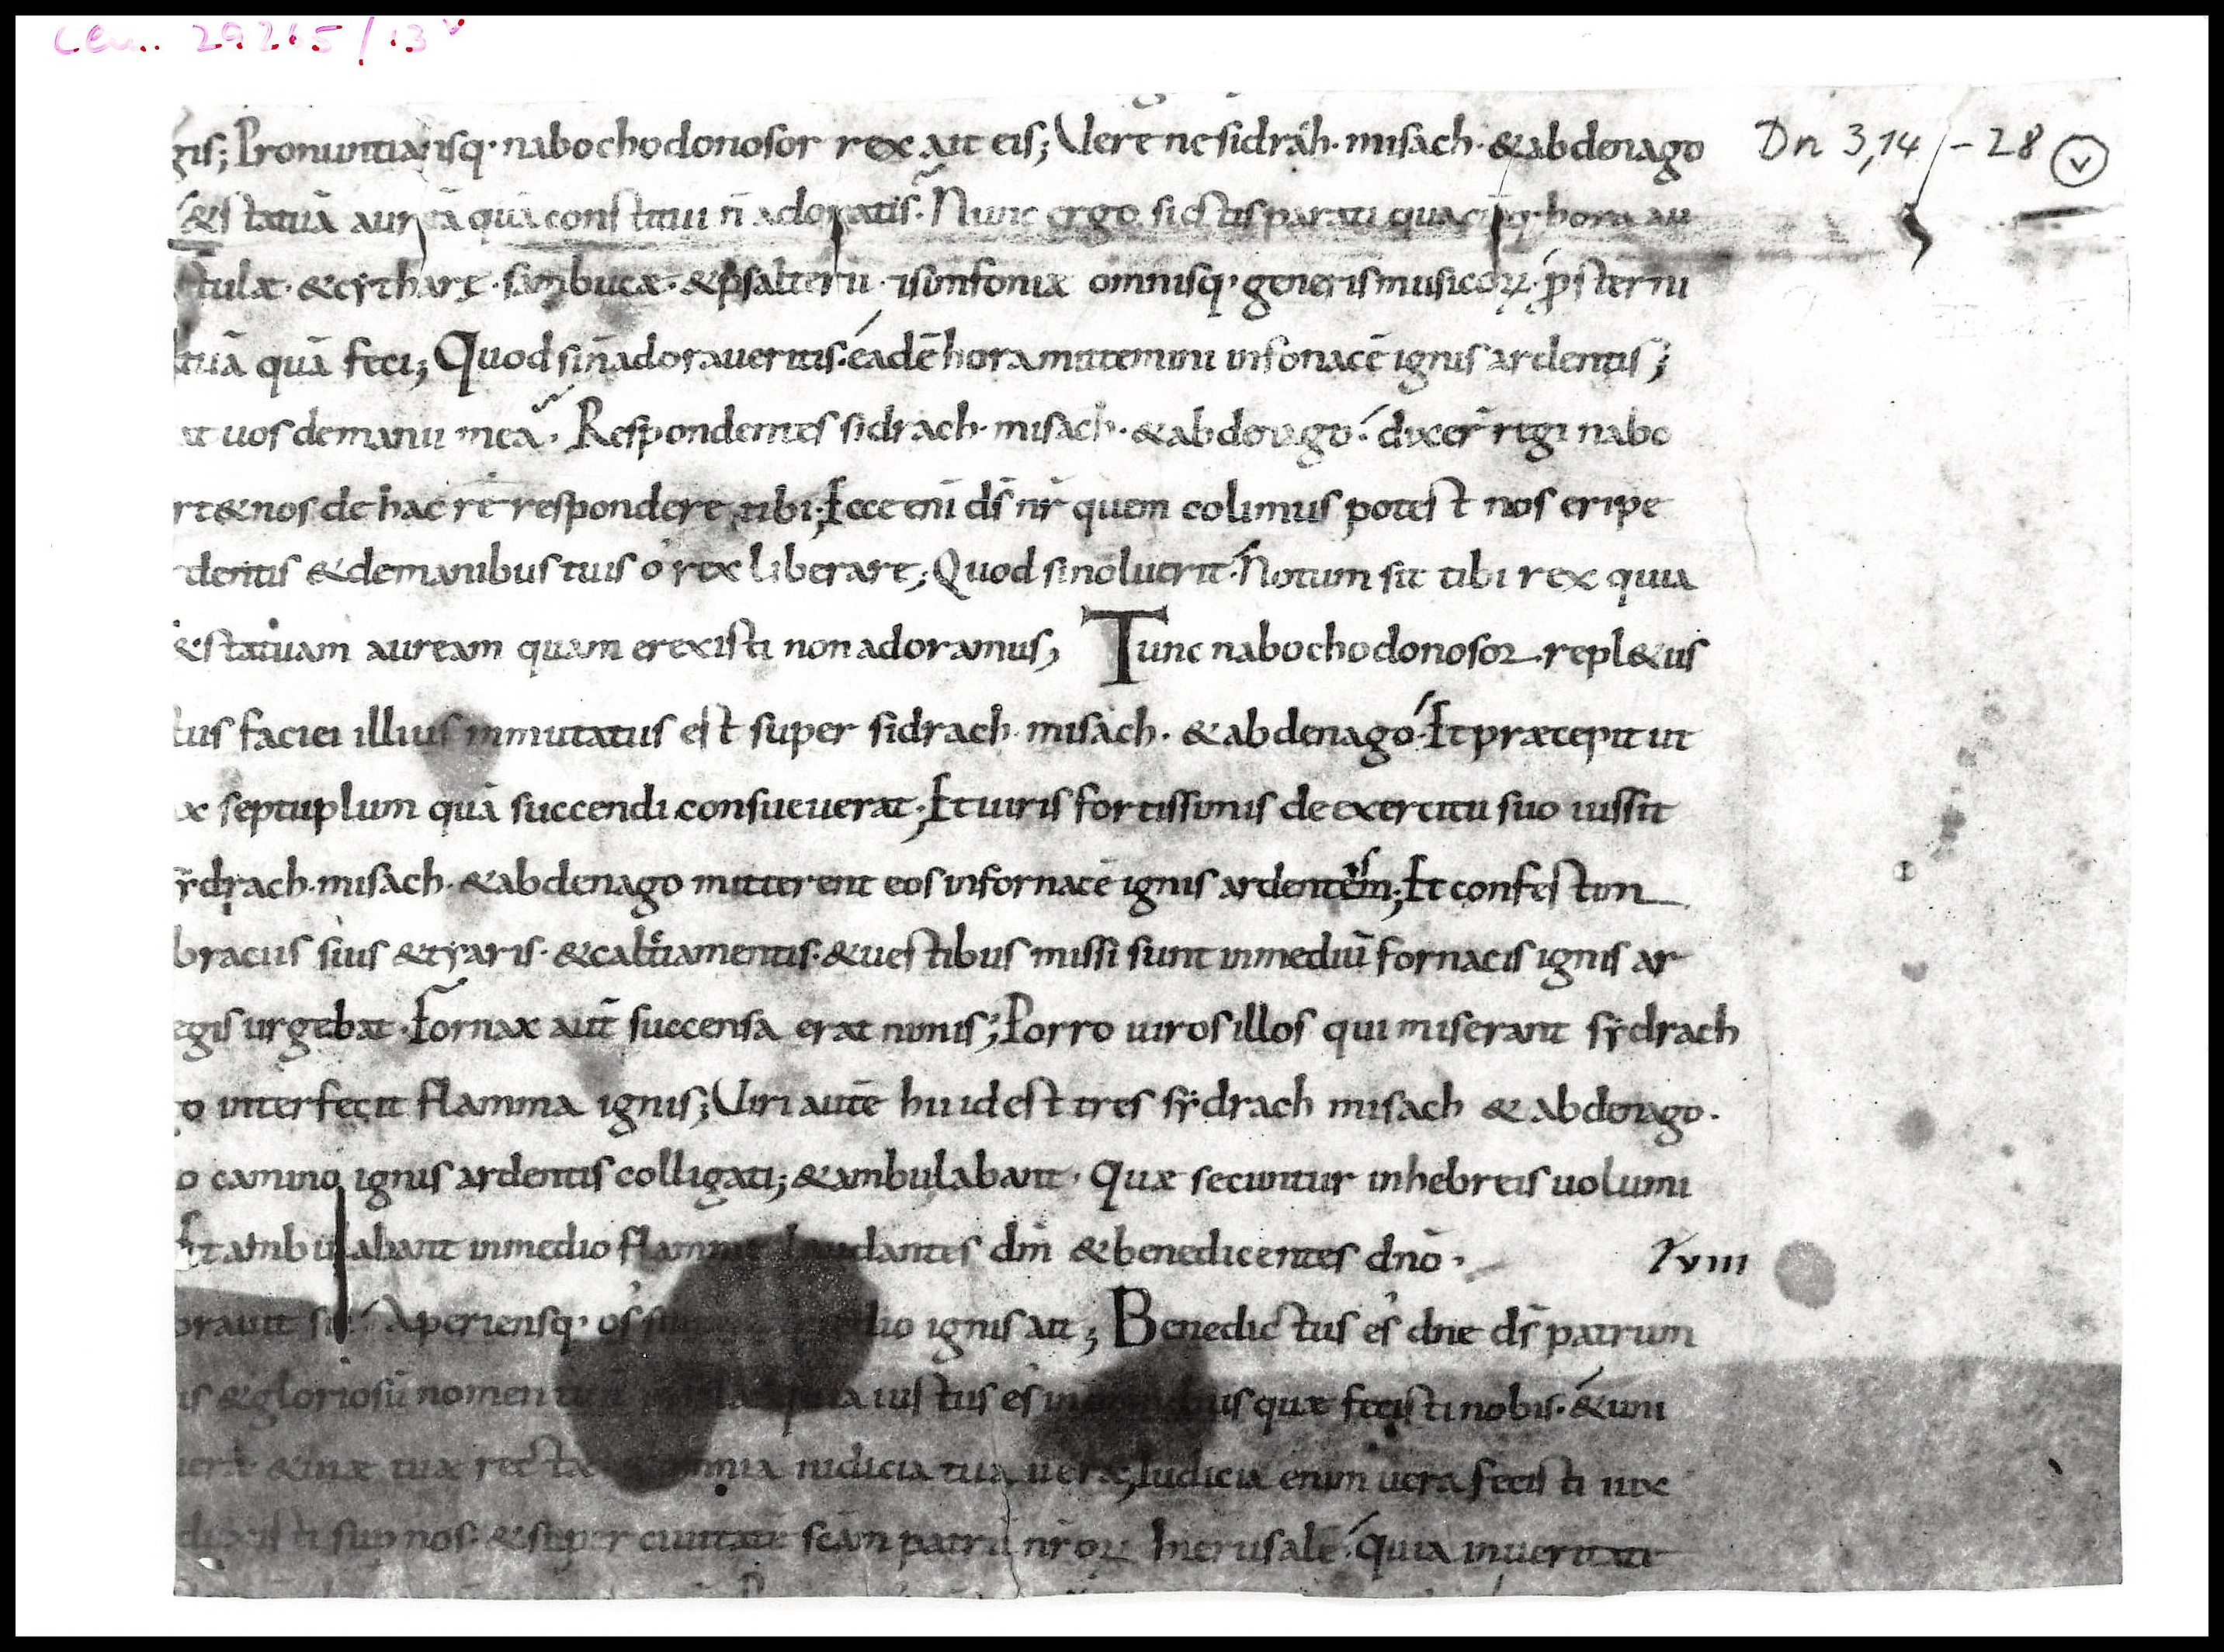 Clm. 29265/13v
Dn 3,14 – 28 v
gis; Pronuntiansq· nabochodonosor rex ait eis; Vere ne sidrah· misach· &abdenago
& statuā aureā quā constitui n̄ adoratis· Nunc ergo si estis parati quacūq· hora au
stulæ· & cytharę· sambucæ· & psalterii· 7 simfoniæ omnisq· generis musicoꝝ· ꝓsterni
tuā quā feci; Quod si n̄ adoraueritis· eadē hora mittemini in fonacē ignis ardentis;
at uos de manu mea· Respondentes sidrach· misach· &abdenago· dixer̄ regi nabo
rt& nos de hac re respondere tibi; Ecce eni ds̄ nr̄ quem colimus potest nos eripe
dentis & de manibus tuis o rex liberare; Quod si noluerit· Notum sit tibi rex quia
& statuam auream quam erexisti non adoramus; Tunc nabochodonosor repl&us
tus faciei illius inmutatus est super sidrach misach· &abdenago· Et præcepit ut
x septuplum quā succendi consueuerat; Et uiris fortissimis de exercitu suo iussit
ÿdrach· misach· &abdenago mitterent eos in fornacē ignis ardentem; Et confestim
bracis suis & tyaris· & caltiamentis· & uestibus missi sunt in mediū fornacis ignis ar
egis urgebat· Fornax aut̄ succensa erat nimis; Porro uiros illos qui miserant sÿdrach
o interfecit flamma ignis; Viri autē hii id est tres sÿdrach misach & abdenago·
o camino ignis ardentis colligati; & ambulabant· Quæ secuntur in hebreis uolumi
Et ambulabant in medio flammæ laudantes dm̄ & benedicentes dnō· xviii
orauit sic Aperiensq· os ignis ait; Benedictus es dne ds̄ patrum
is & gloriosū nomen iustus es in quæ fecisti nobis· & uni
uera & uiæ tuæ recta omnia iudicia tua uera; Iudicia enim uera fecisti iux
duxisti sup nos· & super ciuitatē scām patrū nr̄oꝝ hierusalē· quia in ueritate